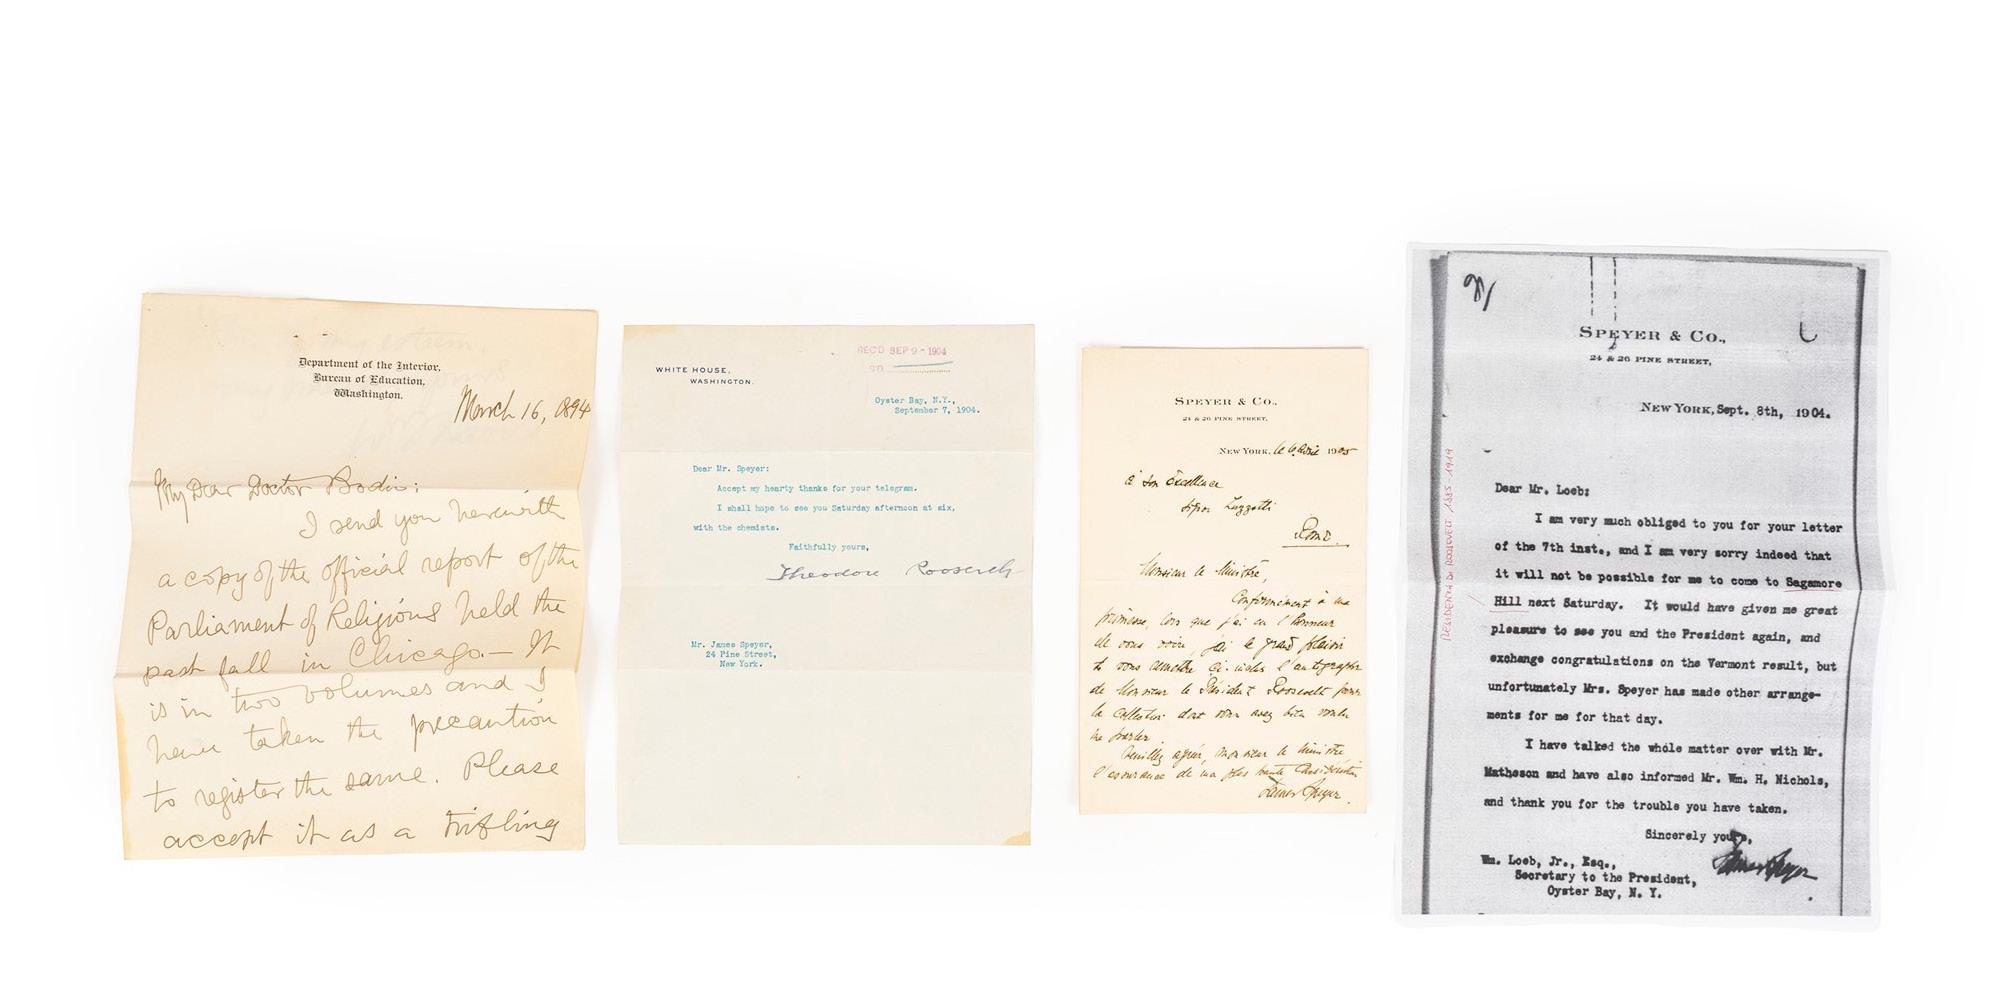 Department of the Interior,
Bureau of Education,
Washington.
March 16, 1894
My Dear Doctor Bodio:
I send you herewith
a copy of the official report of the
Parliament of Religions held the
past fall in Chicago. — It
is in two volumes and I
have taken the precaution
to register the same. Please
accept it as a trifling
REC'D SEP 9 - 1904
WHITE HOUSE,
WASHINGTON.
Oyster Bay, N.Y.,
September 7, 1904.
Dear Mr. Speyer:
Accept my hearty thanks for your telegram.
I shall hope to see you Saturday afternoon at six,
with the chemists.
Faithfully yours,
Theodore Roosevelt
Mr. James Speyer,
24 Pine Street,
New York.
SPEYER & CO.,
24 & 26 PINE STREET,
NEW YORK, le 6 1905
à Son Excellence
Luzzatti
Rome.
Monsieur le Ministre,
Conformément à ma
promesse, lors que j'ai eu l'honneur
de vous voir, j'ai le grand plaisir
de vous remettre ci-inclus l'autographe
de Monsieur le Président Roosevelt pour
la collection dont vous avez bien voulu
me parler.
Veuillez agréer, monsieur le Ministre,
l'assurance de ma plus haute Considération
James Speyer.
SPEYER & CO.,
24 & 26 PINE STREET,
NEW YORK, Sept. 8th, 1904.
RESIDENZA DI ROOSEVELT 1885-1919
Dear Mr. Loeb:
I am very much obliged to you for your letter
of the 7th inst., and I am very sorry indeed that
it will not be possible for me to come to Sagamore
Hill next Saturday. It would have given me great
pleasure to see you and the President again, and
exchange congratulations on the Vermont result, but
unfortunately Mrs. Speyer has made other arrange-
ments for me for that day.
I have talked the whole matter over with Mr.
Matheson and have also informed Mr. Wm. H. Nichols,
and thank you for the trouble you have taken.
Sincerely yours,
James Speyer
Wm. Loeb, Jr., Esq.,
Secretary to the President,
Oyster Bay, N. Y.